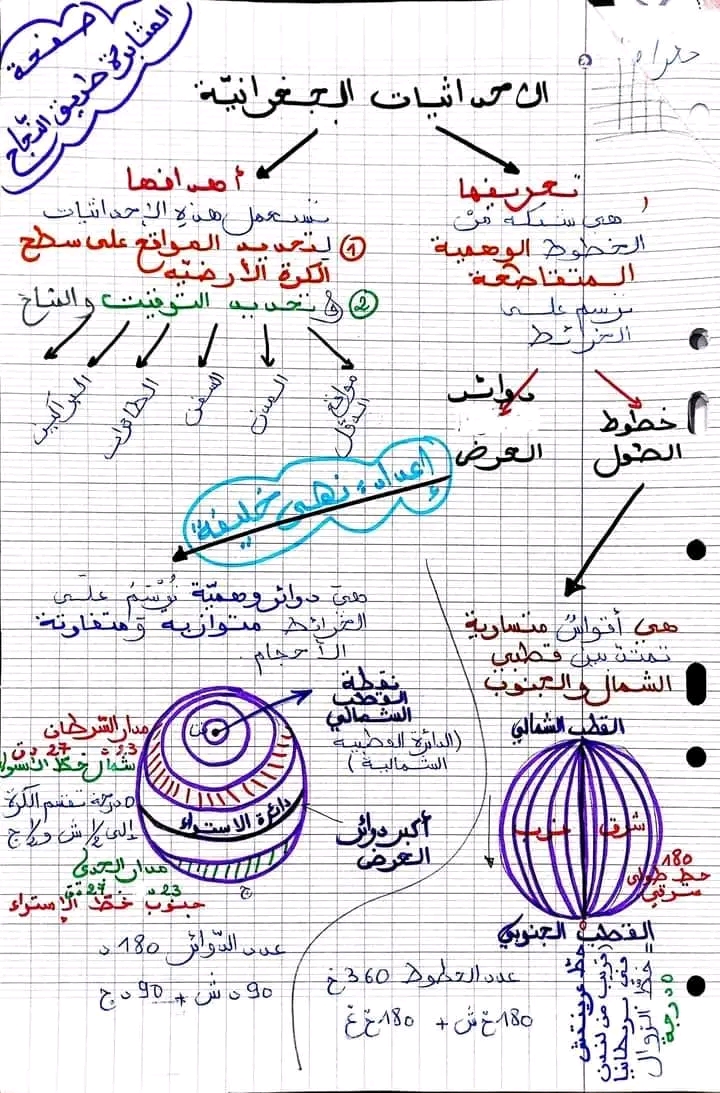 صفحة
المثابرة طريق النجاح
الاحداثيات الجغرافيّة
تعريفها
هي شبكة من
الخطوط الوهمية
المتقاطعة
ترسم على
الخرائط
أهدافها
تستعمل هذه الإحداثيات
① لتحديد المواقع على سطح
الكرة الأرضيّة
② تحديد التوقيت والمناخ
مواقع الدول
المدن
السفن
الطائرات
البراكين
خطوط
الطول
دوائر
العرض
إعداد: نهى خليفة
هي دوائر وهميّة تُرْسَمُ على
الخرائط متوازية ومتفاوتة
الأحجام.
هي أقواسٌ متساوية
تمتدّ بين قطبي
الشمال والجنوب
نقطة
القطب
الشمالي
(الدائرة القطبية
الشمالية)
مدار السّرطان
23 د 27 دق
شمال خطّ الاستواء
0 درجة تقسم الكرة
إلى 1/2 ش و 1/2 ج
دائرة الاستواء
أكبر دوائر
العرض
مدار الجدي
23 د 27 دق
جنوب خطّ الإستواء
ج
عدد الدّوائر 180 د
90 د ش + 90 د ج
القطب الشمالي
غرب
شرق
180
خط طول
شرقي
القطب الجنوبي
عدد الخطوط 360 خ
180 خ ش + 180 خ غ
خط غرينتش
(قريب من لندن
في بريطانيا
= خطّ الزوال
0 درجة